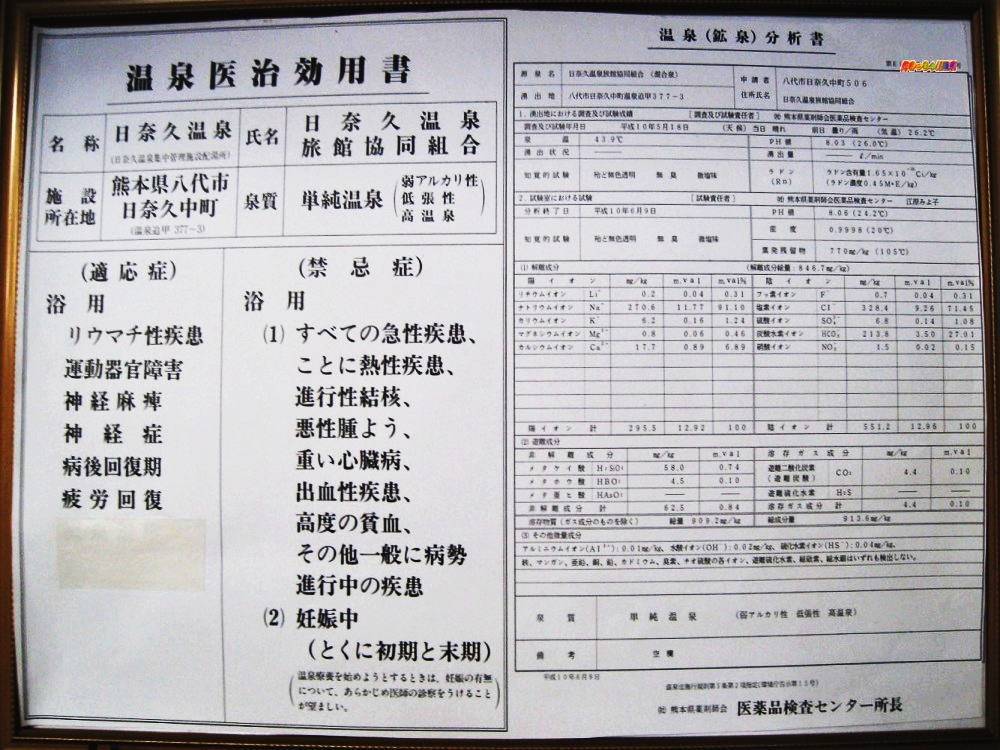 温泉医治効用書
名称 日奈久温泉 氏名 日奈久温泉
(日奈久温泉集中管理施設配湯所) 旅館協同組合
施設 熊本県八代市 泉質 単純温泉 弱アルカリ性
所在地 日奈久中町 低張性
(温泉迫甲377-3) 高温泉
(適応症)
浴用
リウマチ性疾患
運動器官障害
神経麻痺
神経症
病後回復期
疲労回復
(禁忌症)
浴用
(1) すべての急性疾患、
ことに熱性疾患、
進行性結核、
悪性腫よう、
重い心臓病、
出血性疾患、
高度の貧血、
その他一般に病勢
進行中の疾患
(2) 妊娠中
(とくに初期と末期)
(温泉療養を始めようとするときは、妊娠の有無
について、あらかじめ医師の診察をうけること
が望ましい。)
温泉(鉱泉)分析書
源泉名 日奈久温泉旅館協同組合 (混合泉) 申請者 八代市日奈久中町506
湧出地 八代市日奈久中町温泉迫甲377-3 住所氏名 日奈久温泉旅館協同組合
1.湧出地における調査及び試験成績 [調査及び試験責任者] ㈳ 熊本県薬剤師会医薬品検査センター
調査及び試験年月日 平成10年5月18日 (天候) 当日 晴れ 前日 曇り/雨 (気温) 26.2℃
泉温 43.9℃ PH値 8.03 (26.0℃)
湧出状況 ―― 湧出量 ― ℓ/min
知覚的試験 殆ど無色透明 無臭 微塩味 ラドン (Rn) ラドン含有量1.65×10 Ci/kg
(ラドン濃度0.45M・E/kg)
2.試験室における試験 [試験責任者] ㈳ 熊本県薬剤師会医薬品検査センター 江原みよ子
分析終了日 平成10年6月9日 PH値 8.06 (24.2℃)
知覚的試験 殆ど無色透明 無臭 微塩味 密度 0.9998 (20℃)
蒸発残留物 770mg/kg (105℃)
(1) 解離成分 (解離成分総量:846.7mg/kg)
陽イオン mg/kg m.val m.val% 陰イオン mg/kg m.val m.val%
リチウムイオン Li⁺ 0.2 0.04 0.31 フッ素イオン F⁻ 0.7 0.04 0.31
ナトリウムイオン Na⁺ 270.6 11.77 91.10 塩素イオン Cl⁻ 328.4 9.26 71.45
カリウムイオン K⁺ 6.2 0.16 1.24 硫酸イオン SO₄²⁻ 6.8 0.14 1.08
マグネシウムイオン Mg²⁺ 0.8 0.06 0.46 炭酸水素イオン HCO₃⁻ 213.8 3.50 27.01
カルシウムイオン Ca²⁺ 17.7 0.89 6.89 硝酸イオン NO₃⁻ 1.5 0.02 0.15
陽イオン計 295.5 12.92 100 陰イオン計 551.2 12.96 100
(2) 遊離成分
非解離成分 mg/kg m.val 溶存ガス成分 mg/kg m.val
メタケイ酸 H₂SiO₃ 58.0 0.74 遊離二酸化炭素 (遊離炭酸) CO₂ 4.4 0.10
メタホウ酸 HBO₂ 4.5 0.10
メタ亜ヒ酸 HAsO₂ ―― ―― 遊離硫化水素 H₂S ―― ――
非解離成分計 62.5 0.84 溶存ガス成分計 4.4 0.10
溶存物質(ガス成分のものを除く) 総量 909.2mg/kg 総成分量 913.6mg/kg
(3) その他微量成分
アルミニウムイオン(Al³⁺):0.01mg/kg、水酸イオン(OH⁻):0.02mg/kg、硫化水素イオン(HS⁻):0.04mg/kg、
鉄、マンガン、亜鉛、銅、鉛、カドミウム、臭素、チオ硫酸の各イオン、遊離硫化水素、総砒素、総水銀はいずれも検出しない。
泉質 単純温泉 (弱アルカリ性 低張性 高温泉)
備考 空欄
平成10年6月9日
温泉法施行規則第5条第2項指定(環境庁告示第15号)
㈳ 熊本県薬剤師会 医薬品検査センター所長